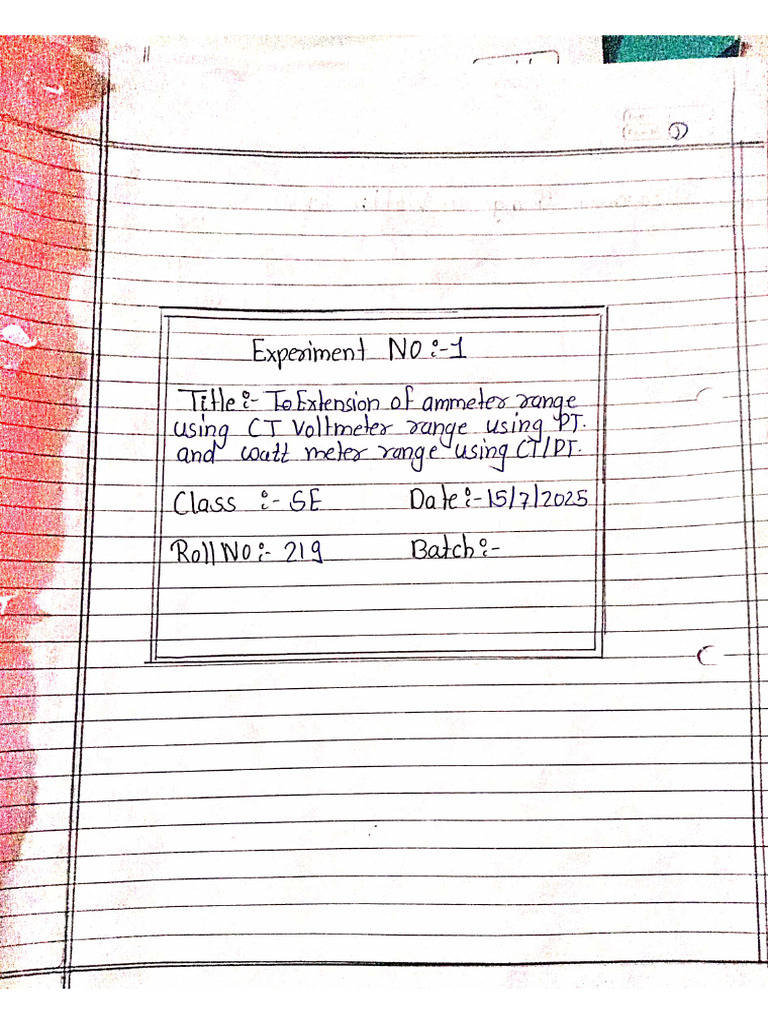 ①
Experiment NO :- 1
Title :- To Extension of ammeter range
using CT Voltmeter range using PT.
and watt meter range using CT/PT.
Class :- SE Date :- 15/7/2025
Roll NO :- 219 Batch :-